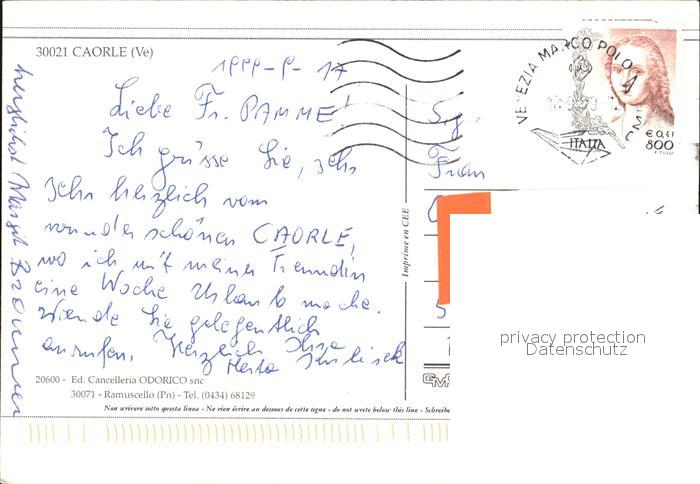 30021 CAORLE (Ve)
1999-9-17
Liebe Fr. PAMME!
Ich grüsse Sie, sehr
sehr herzlich vom
wunderschönen CAORLE,
wo ich mit meiner Freundin
eine Woche Urlaub mache.
Werde Sie gelegentlich
anrufen. Herzlich Ihre
herzlichst Margit
Sig.
Frau
VENEZIA MARCO POLO
ITALIA
€ 0,41
800
Imprimé en CEE
privacy protection
Datenschutz
20600 - Ed. Cancelleria ODORICO snc
30071 - Ramuscello (Pn) - Tel. (0434) 68129
Non scrivere sotto questa linea - Ne rien écrire au dessous de cette ligne - do not write below this line - Schreibe